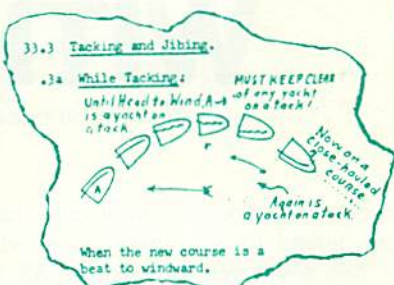 33.3 Tacking and Jibing.
.3a While Tacking:
Until Head to Wind, A →
is a yacht on
a tack
MUST KEEP CLEAR
of any yacht
on a tack!
Now on a
close-hauled
course
A
Again is
a yacht on a tack.
When the new course is a
beat to windward.